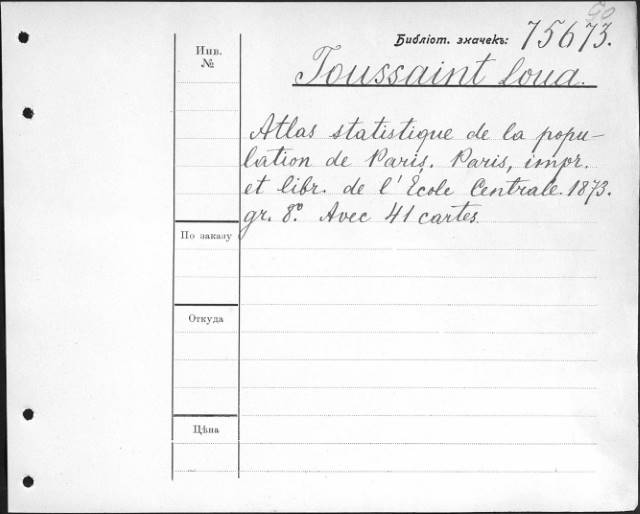 90
Библіот. значекъ: 75673.
Инв.
№
Toussaint Loua.
Atlas statistique de la popu-
lation de Paris. Paris, impr.
et libr. de l'Ecole Centrale. 1873.
gr. 8º. Avec 41 cartes.
По заказу
Откуда
Цѣна